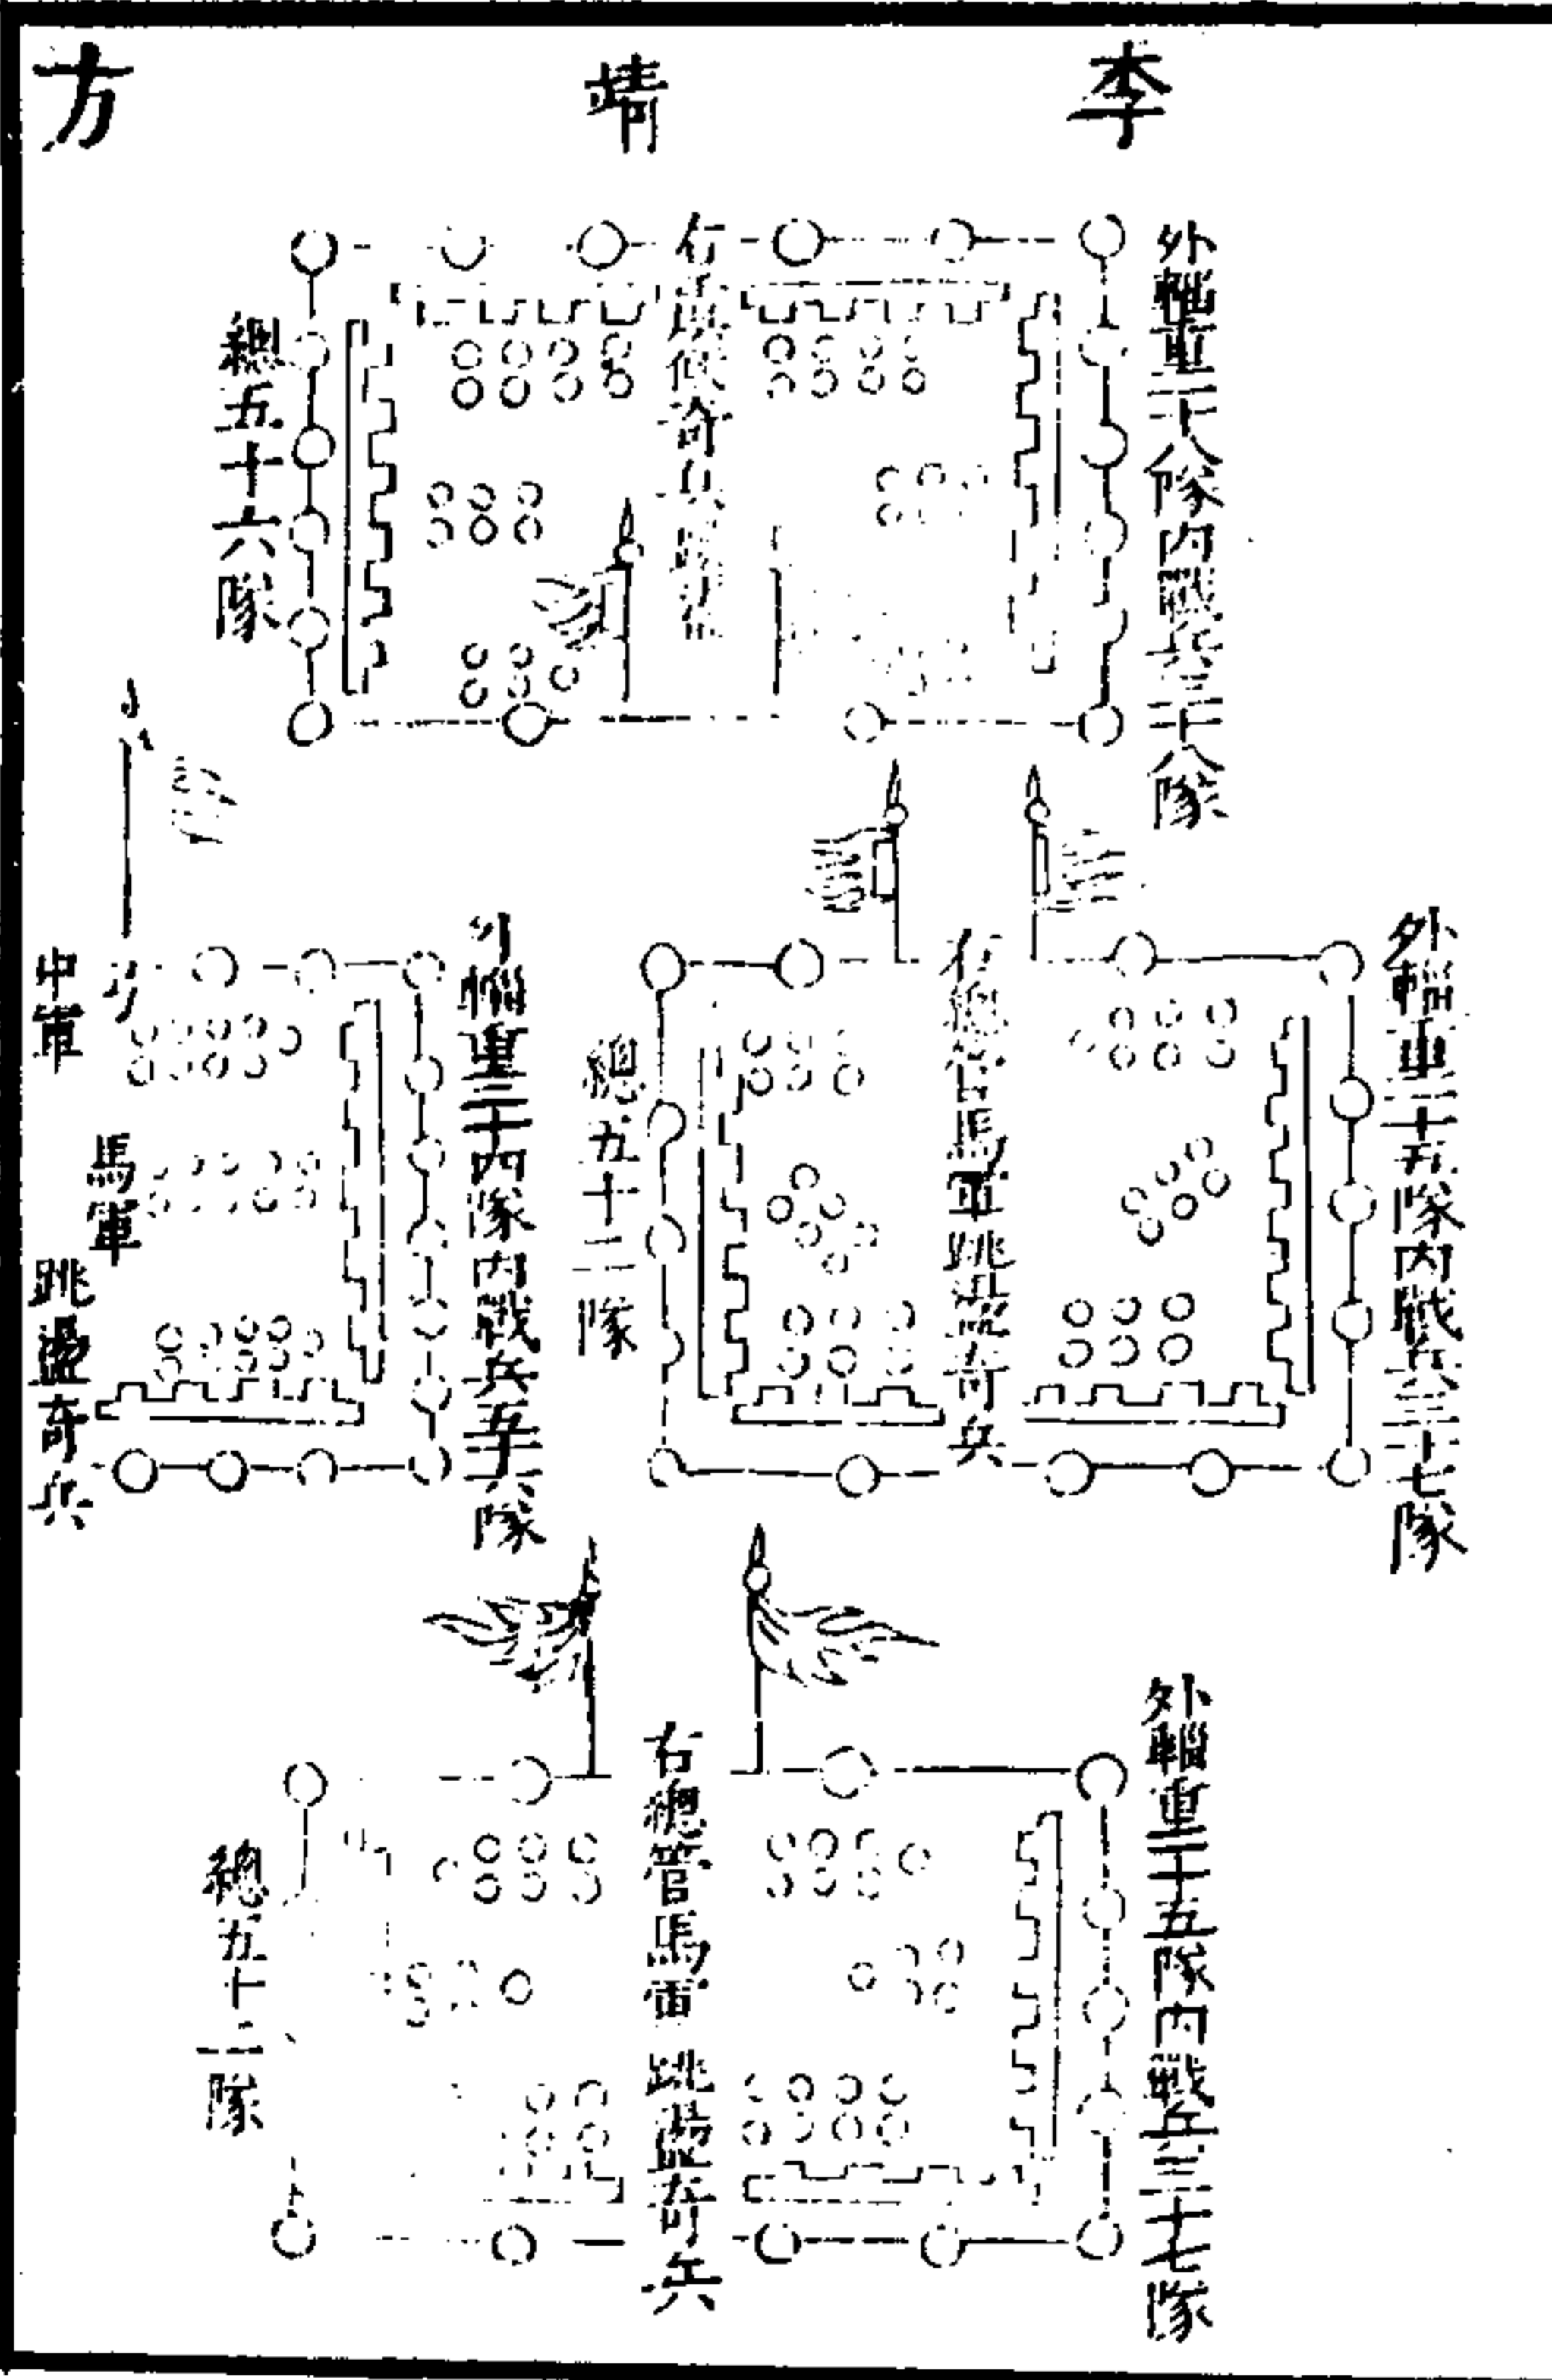 李靖方
外輜重二十八隊內戰兵二十八隊
右虞候奇兵
總五十六隊
外輜重二十五隊內戰兵二十七隊
右總管馬軍跳盪奇兵
總五十二隊
外輜重二十四隊內戰兵五十六隊
中軍
馬軍
跳盪奇兵
外輜重二十五隊內戰兵二十七隊
右總管馬軍跳盪奇兵
總五十二隊